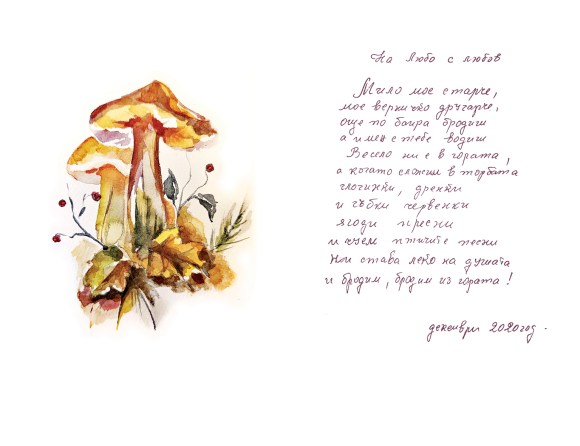 На Любо с любов
Мило мое старче,
мое верничко другарче,
още по баира бродиш
а и мен с тебе водиш
Весело ни е в гората,
а когато сложим в торбата
глогинки, дренки
и гъбки червенки
ягоди пресни
и чуем птичите песни
Ни става леко на душата
и бродим, бродим из гората!
декември 2020 год.